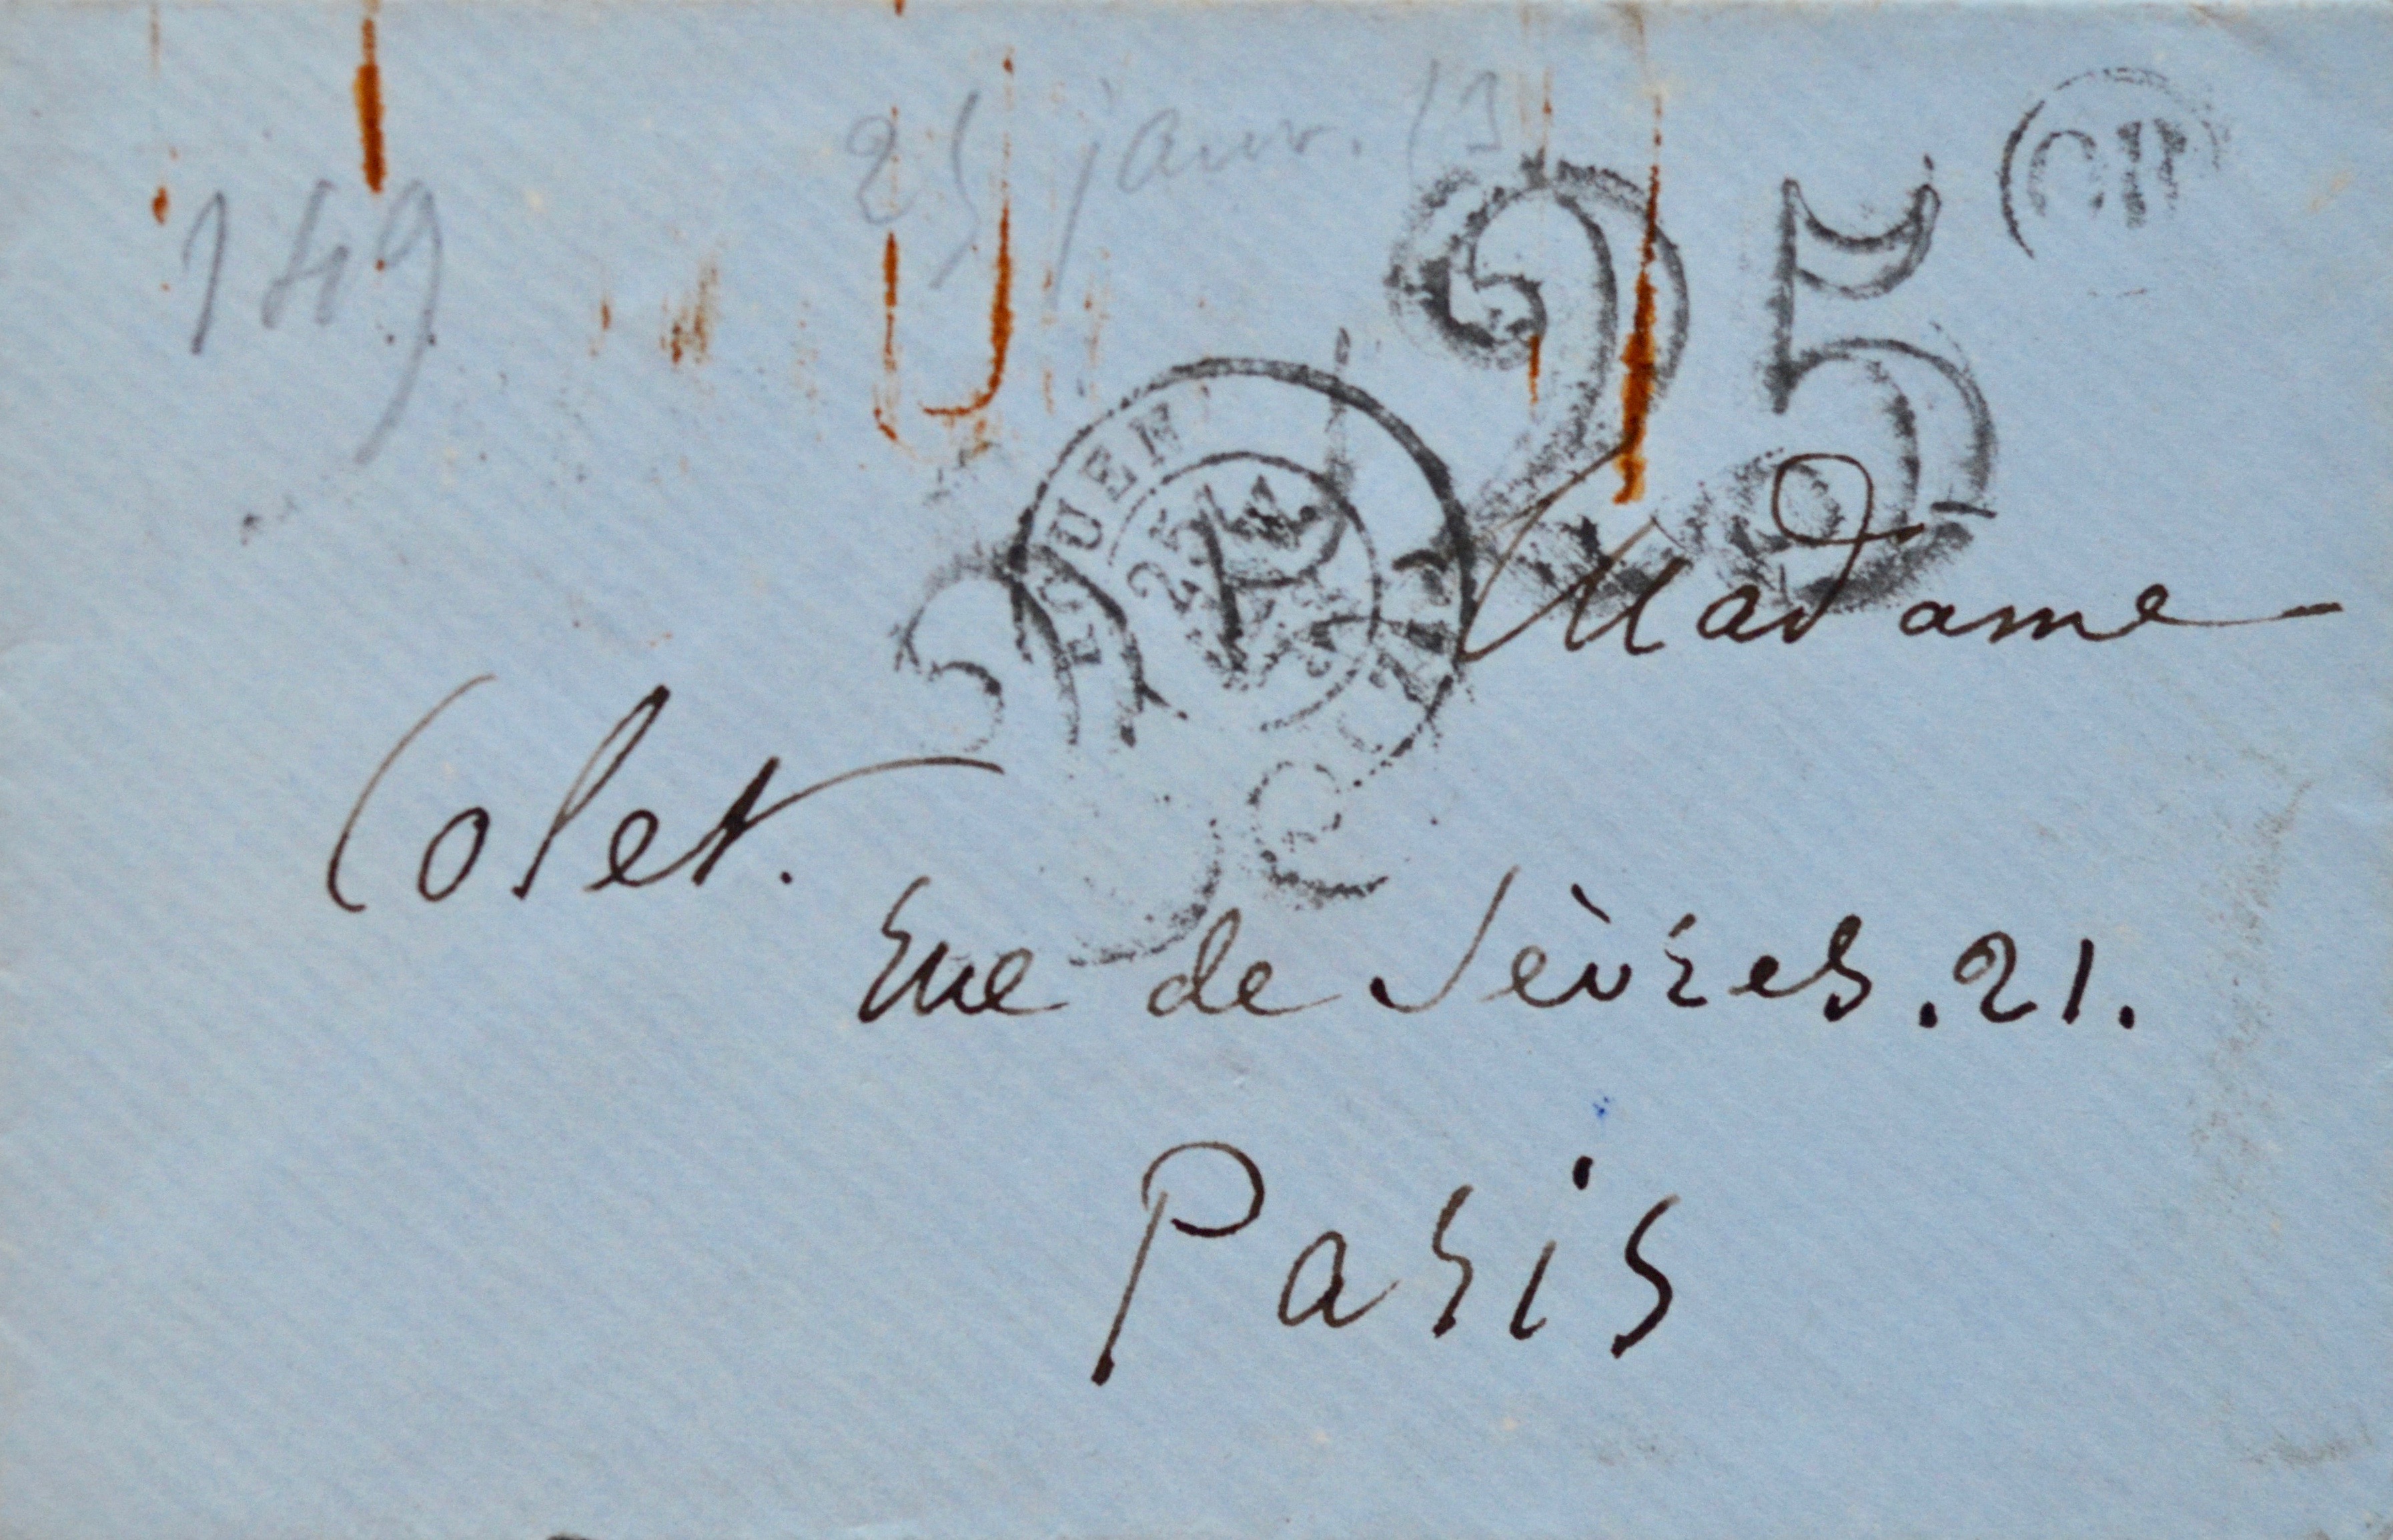 149
25 janv. 53
25
ROUEN
25
Madame
Colet.
Rue de Sèvres. 21.
Paris